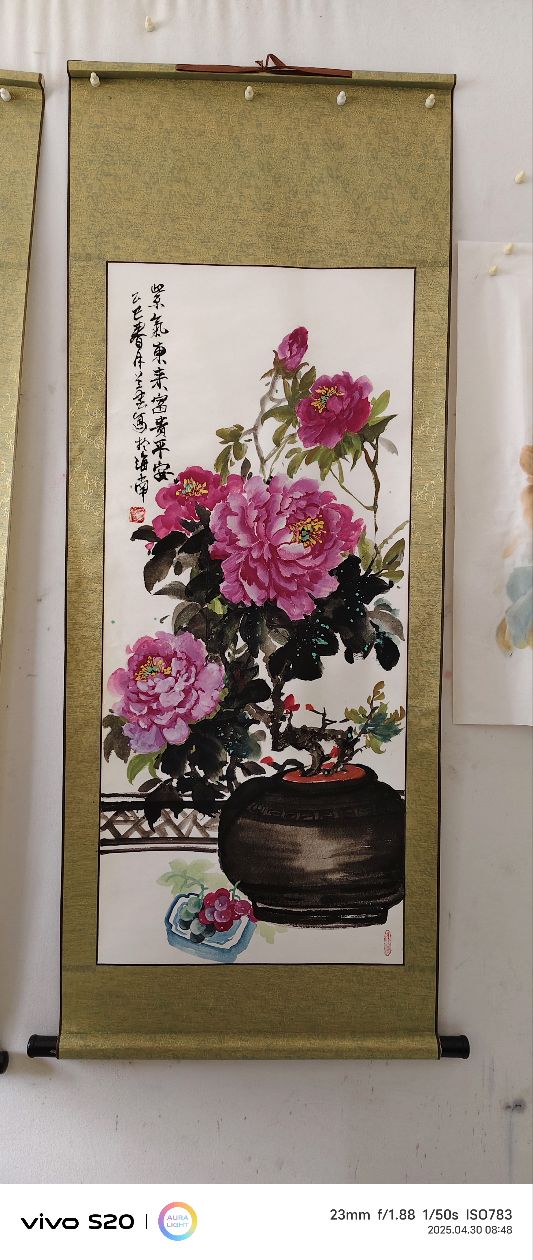 紫氣東来富貴平安
乙巳春月兰玉寫於海南
vivo S20
AURA LIGHT
23mm f/1.88 1/50s ISO783
2025.04.30 08:48